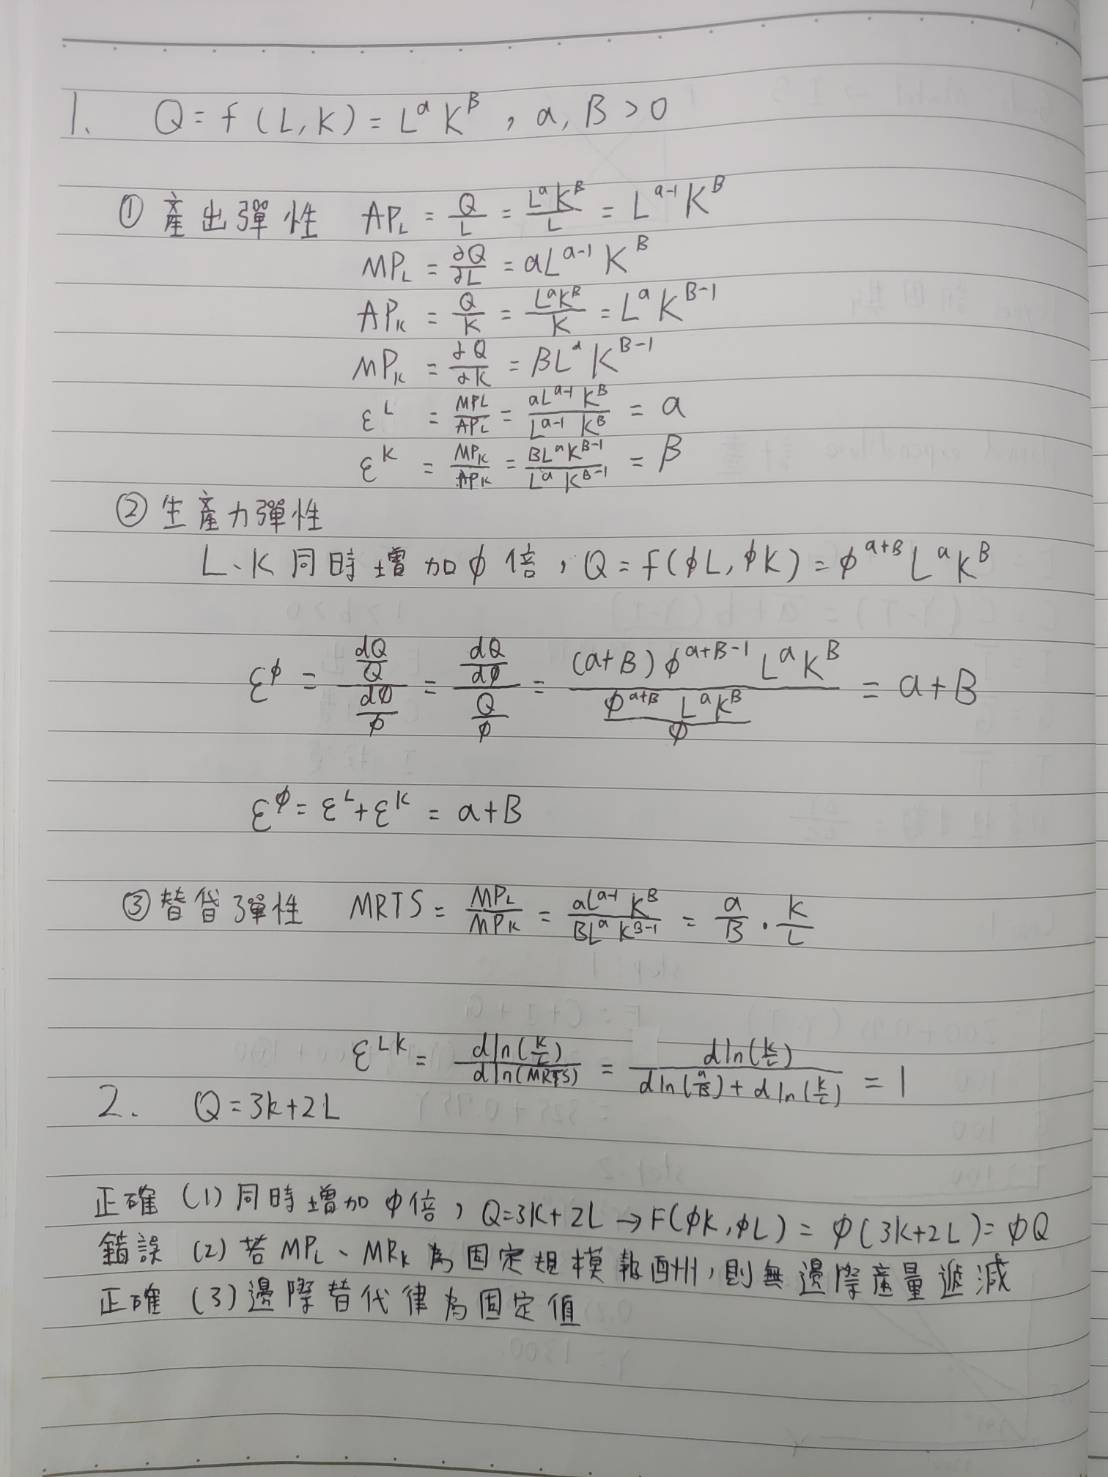 1. Q = f (L, K) = L^α K^β , α, β > 0
① 產出彈性 AP_L = Q/L = L^α K^β / L = L^(α-1) K^β
MP_L = ∂Q/∂L = αL^(α-1) K^β
AP_K = Q/K = L^α K^β / K = L^α K^(β-1)
MP_K = ∂Q/∂K = βL^α K^(β-1)
ε^L = MP_L/AP_L = αL^(α-1) K^β / L^(α-1) K^β = α
ε^K = MP_K/AP_K = βL^α K^(β-1) / L^α K^(β-1) = β
② 生產力彈性
L、K 同時增加 ϕ 倍，Q = f(ϕL, ϕK) = ϕ^(α+β) L^α K^β
ε^ϕ = (dQ/Q)/(dϕ/ϕ) = (dQ/dϕ)/(Q/ϕ) = (α+β) ϕ^(α+β-1) L^α K^β / (ϕ^(α+β) L^α K^β / ϕ) = α+β
ε^ϕ = ε^L + ε^K = α+β
③ 替代彈性 MRTS = MP_L/MP_K = αL^(α-1) K^β / βL^α K^(β-1) = α/β · K/L
ε^LK = d ln(K/L) / d ln(MRTS) = d ln(K/L) / (d ln(α/β) + d ln(K/L)) = 1
2. Q = 3K+2L
正確 (1) 同時增加 ϕ 倍，Q=3K+2L → F(ϕK, ϕL) = ϕ(3K+2L) = ϕQ
錯誤 (2) 若 MP_L、MP_K 為固定規模報酬州，則無邊際產量遞減
正確 (3) 邊際替代律為固定值